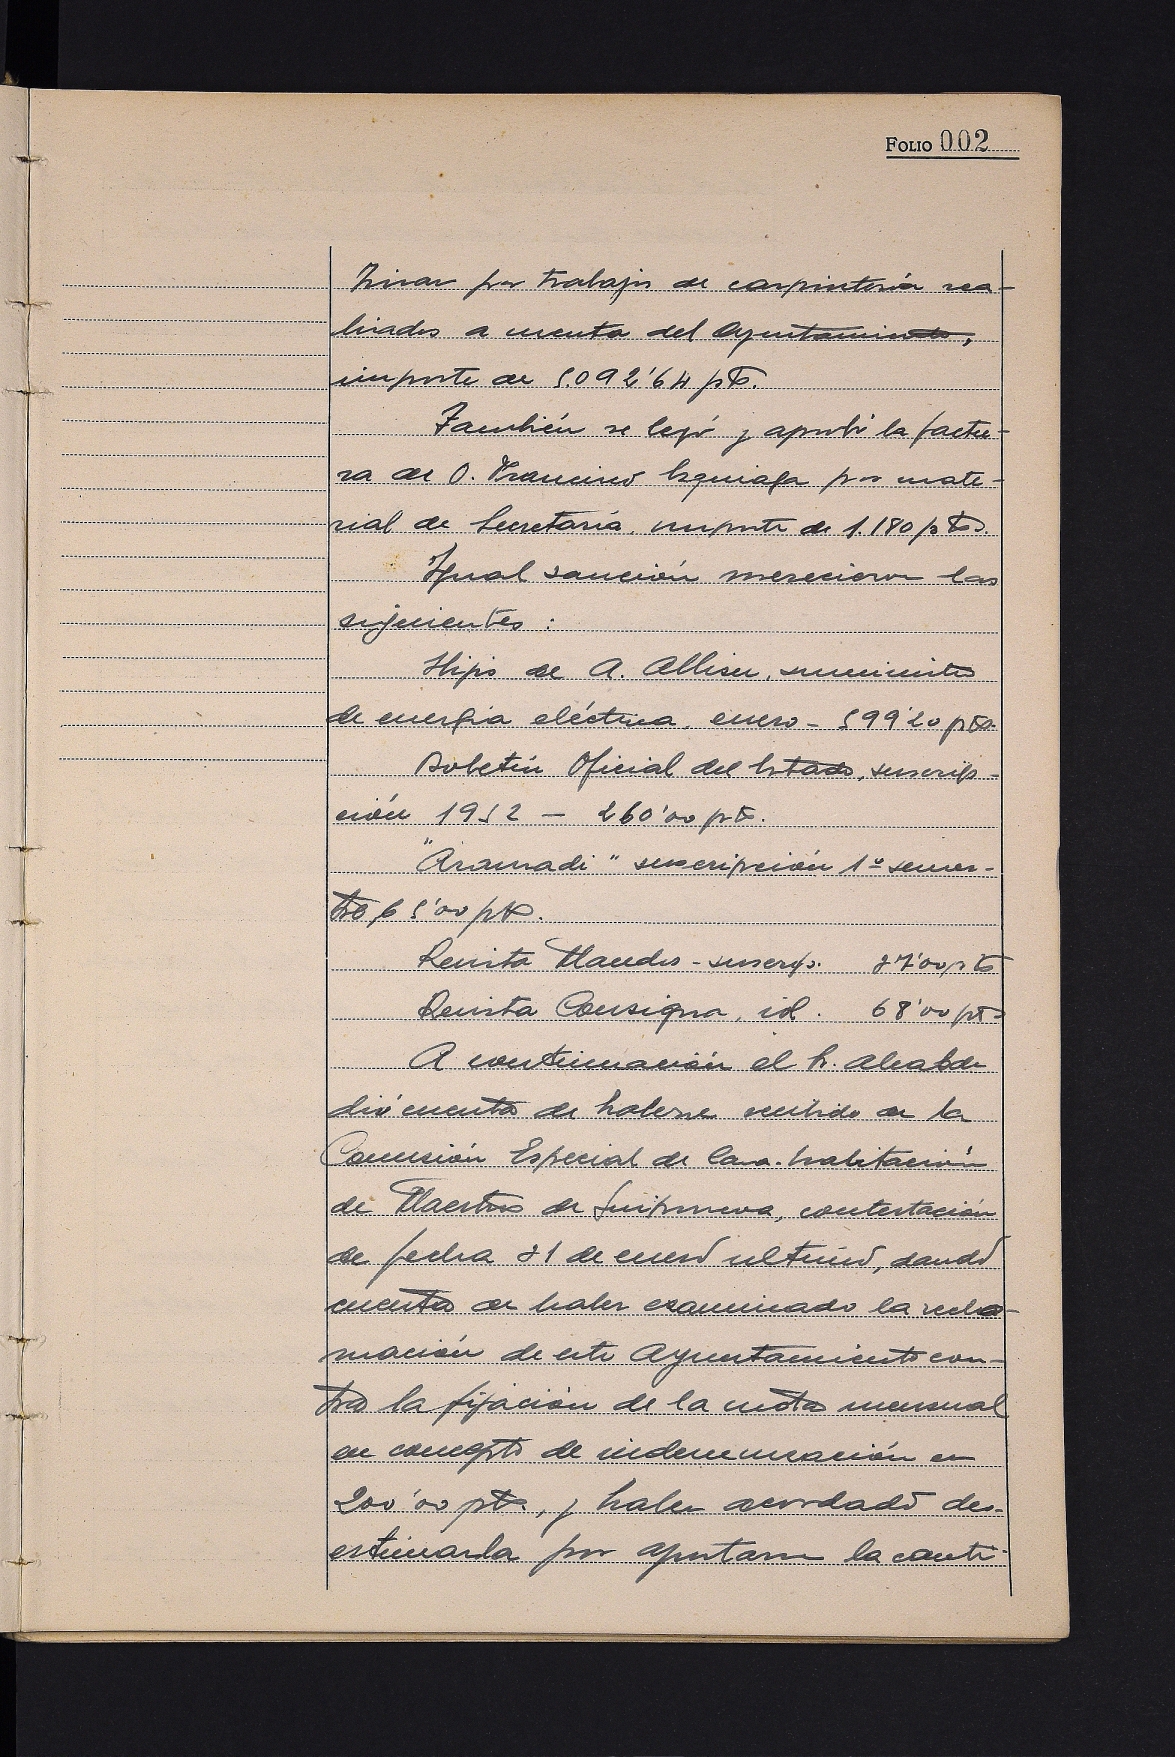 FOLIO 002
por trabajos de carpintería rea-
lizados a cuenta del Ayuntamiento,
importe de 5.092'64 pts.
También se leyó y aprobó la factu-
ra de D. Francisco Izquiaga por mate-
rial de Secretaría, importe de 1.180 pts.
Igual sanción merecieron las
siguientes :
Hijos de A. suministro
de energía eléctrica, enero - 599'20 pts.
Boletín Oficial del Estado, suscrip-
ción 1952 - 260'00 pts.
"Aranzadi" suscripción 1º semes-
tre, 65'00 pts.
Revista Mandos - suscrip. 27'00 pts
Revista Consigna, id. 68'00 pts
A continuación el Sr. Alcalde
dió cuenta de haberse recibido de la
Comisión Especial de Casa-habitación
de Maestros de Guipuzcoa, contestación
de fecha 31 de enero ultimo, dando
cuenta de haber examinado la recla-
mación de este Ayuntamiento con-
tra la fijación de la cuota mensual
en concepto de indemnización en
200'00 pts., y haber acordado des-
estimarla por ajustarse la canti-